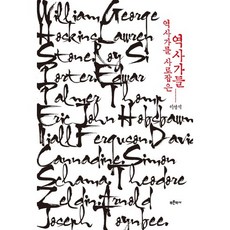 William George
Hoskins, Lawren
Stone, Roy S.
Porter, Edwar
Palmer Thomp
Eric John Hobsbawm
Niall Ferguson, Davi
Cannadine, Simon
Schama, Theodore
Zeldin, Arnold
Joseph Toynbee.
역사가를 사로잡은
역사가들
이영석
푸른역사